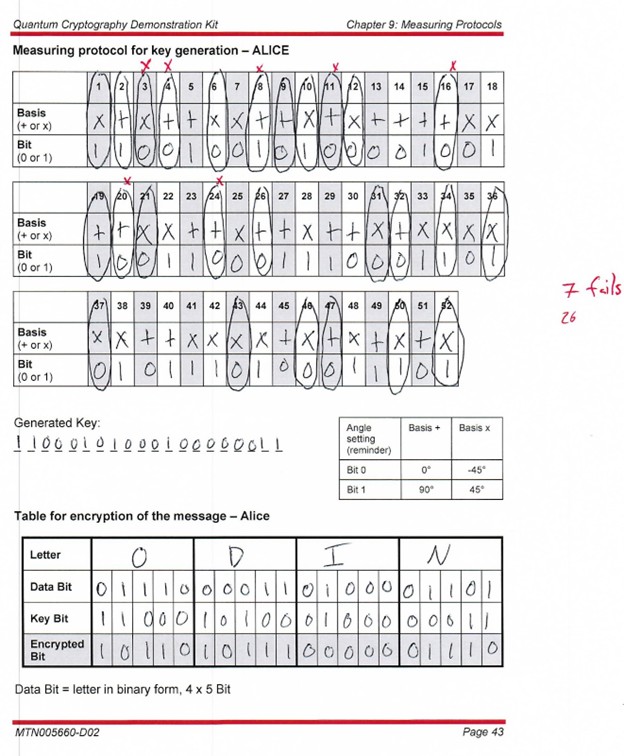 Quantum Cryptography Demonstration Kit Chapter 9: Measuring Protocols
Measuring protocol for key generation – ALICE
x x x x x
1 2 3 4 5 6 7 8 9 10 11 12 13 14 15 16 17 18
Basis (+ or x) x + x + + x x + + x + x + + + + x x
Bit (0 or 1) 1 1 0 0 1 0 0 1 0 1 0 0 0 0 1 0 0 1
x x
19 20 21 22 23 24 25 26 27 28 29 30 31 32 33 34 35 36
Basis (+ or x) + + x x + + x + + x + + x + x x x x
Bit (0 or 1) 1 0 0 1 1 0 0 0 1 1 1 0 0 0 1 1 0 1
7 fails
26
37 38 39 40 41 42 43 44 45 46 47 48 49 50 51 52
Basis (+ or x) x x + + x x x x + x + x + x + x
Bit (0 or 1) 0 1 0 1 1 1 0 1 0 0 0 1 1 1 0 1
Generated Key:
1 1 0 0 0 1 0 1 0 0 0 1 0 0 0 0 0 0 1 1
Angle setting (reminder) Basis + Basis x
Bit 0 0° -45°
Bit 1 90° 45°
Table for encryption of the message – Alice
Letter O D I N
Data Bit 0 1 1 1 0 0 0 0 1 1 0 1 0 0 0 0 1 1 0 1
Key Bit 1 1 0 0 0 1 0 1 0 0 0 1 0 0 0 0 0 0 1 1
Encrypted Bit 1 0 1 1 0 1 0 1 1 1 0 0 0 0 0 0 1 1 1 0
Data Bit = letter in binary form, 4 x 5 Bit
MTN005660-D02 Page 43